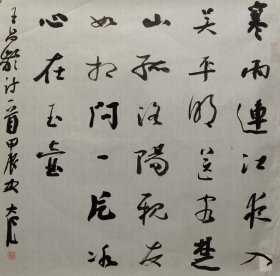 寒雨連江夜入
吴平明送客楚
山孤洛陽親友
如相问一片冰
心在玉壺
王昌齡诗一首甲辰